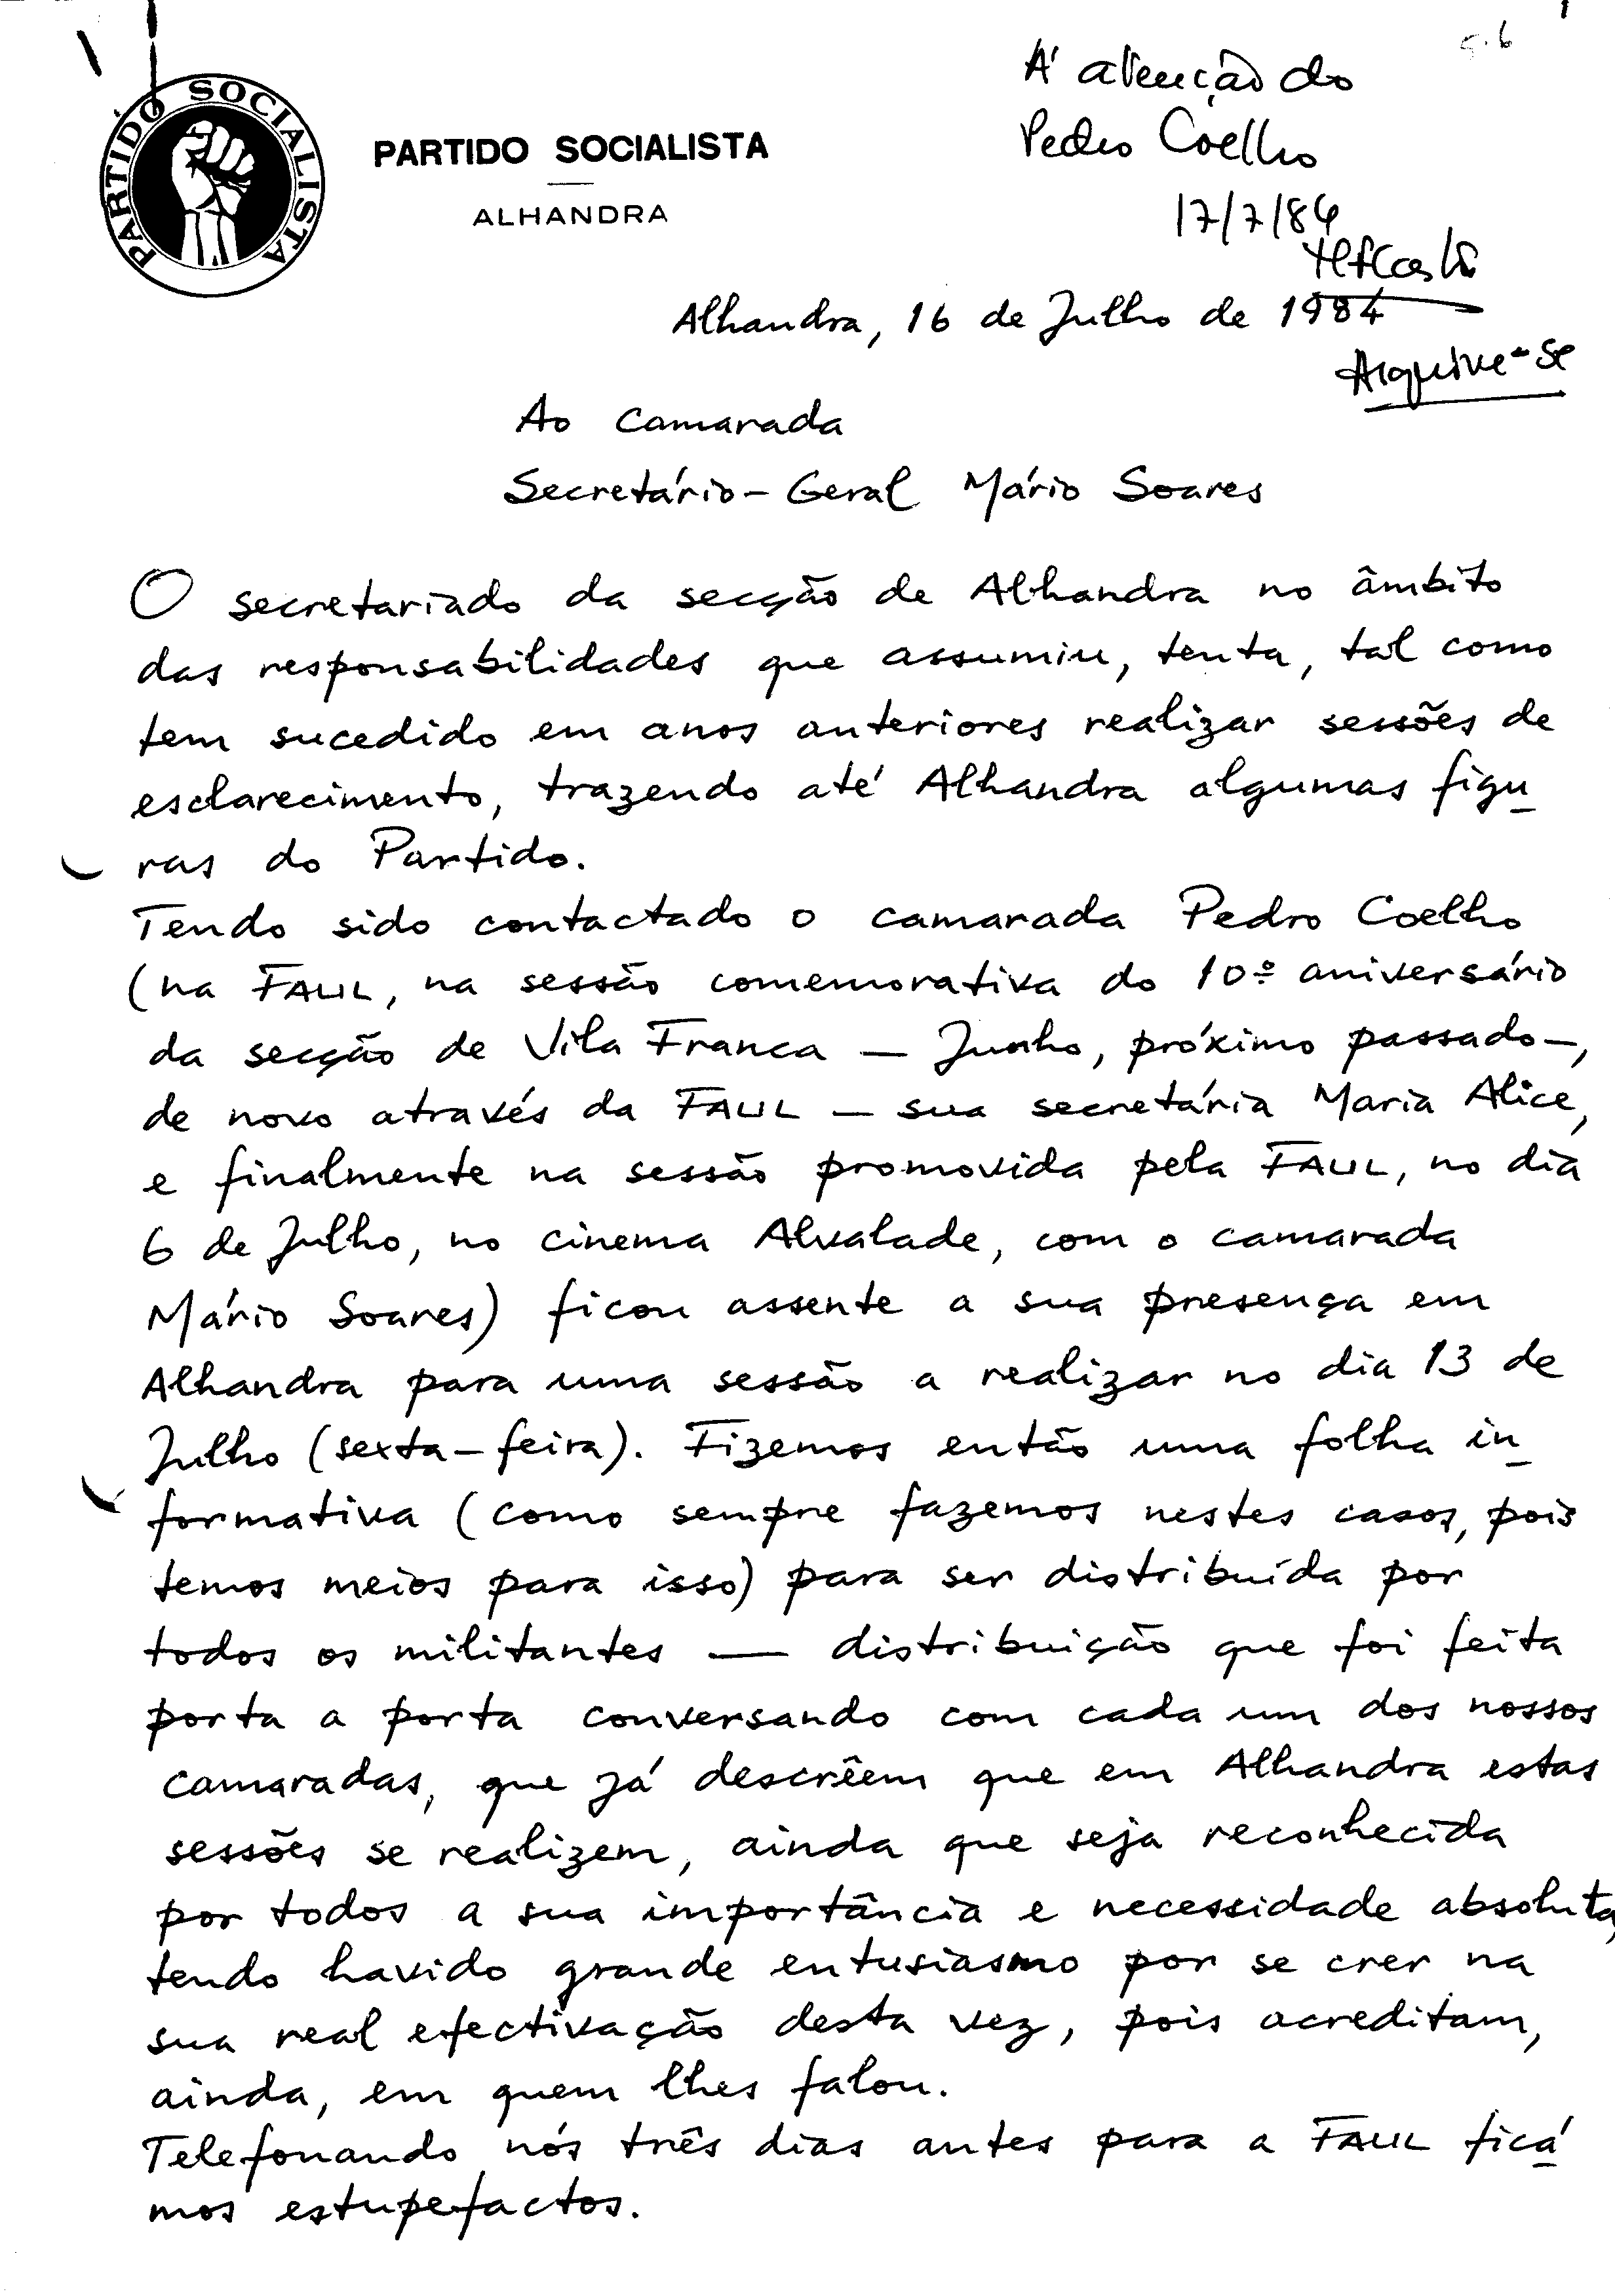 5.6
À atenção do
Pedro Coelho
17/7/84
PARTIDO SOCIALISTA
PARTIDO SOCIALISTA
ALHANDRA
Alhandra, 16 de Julho de 1984
Arquive-se
Ao Camarada
Secretário-Geral Mário Soares
O secretariado da secção de Alhandra no âmbito
das responsabilidades que assumiu, tenta, tal como
tem sucedido em anos anteriores realizar sessões de
esclarecimento, trazendo até Alhandra algumas figu
ras do Partido.
Tendo sido contactado o camarada Pedro Coelho
(na FAUL, na sessão comemorativa do 10º aniversário
da secção de Vila Franca — Junho, próximo passado—,
de novo através da FAUL — sua secretária Maria Alice,
e finalmente na sessão promovida pela FAUL, no dia
6 de Julho, no cinema Alvalade, com o camarada
Mário Soares) ficou assente a sua presença em
Alhandra para uma sessão a realizar no dia 13 de
Julho (sexta-feira). Fizemos então uma folha in
formativa (como sempre fazemos nestes casos, pois
temos meios para isso) para ser distribuída por
todos os militantes — distribuição que foi feita
porta a porta conversando com cada um dos nossos
camaradas, que já descrêem que em Alhandra estas
sessões se realizem, ainda que seja reconhecida
por todos a sua importância e necessidade absoluta,
tendo havido grande entusiasmo por se crer na
sua real efectivação desta vez, pois acreditam,
ainda, em quem lhes falou.
Telefonando nós três dias antes para a FAUL ficá
mos estupefactos.